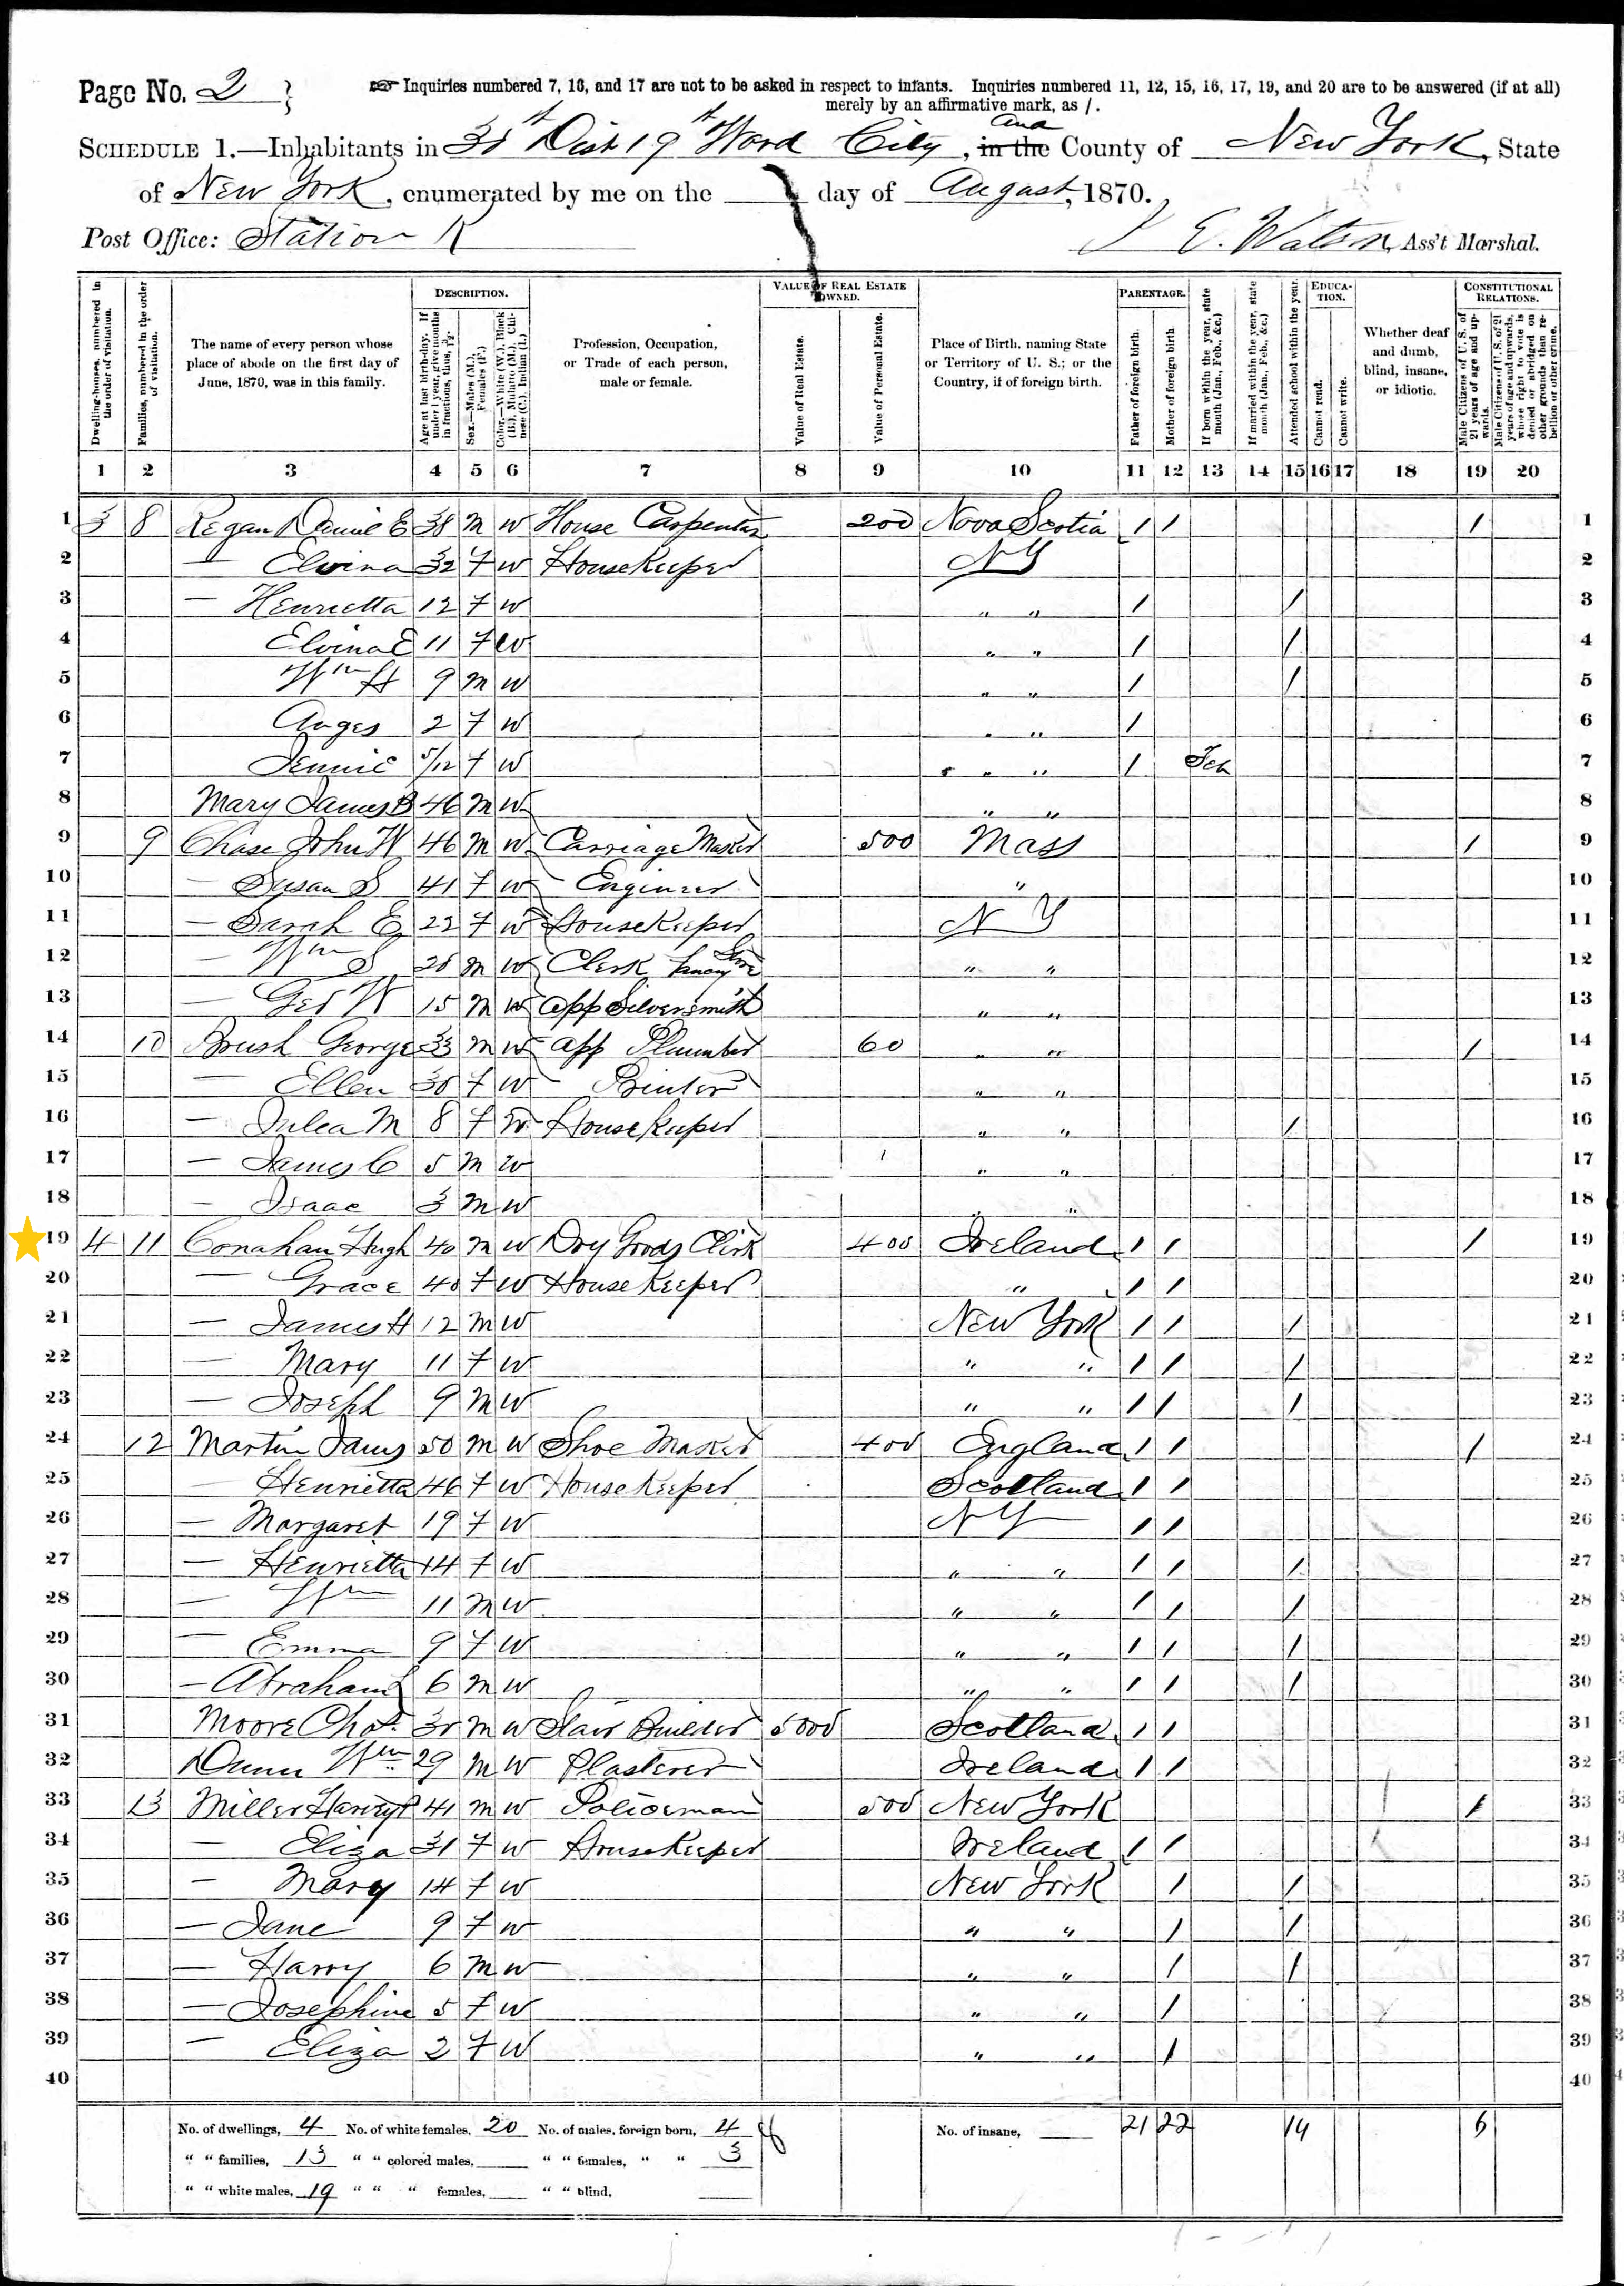 Page No. 2
☞ Inquiries numbered 7, 16, and 17 are not to be asked in respect to infants. Inquiries numbered 11, 12, 15, 16, 17, 19, and 20 are to be answered (if at all)
merely by an affirmative mark, as /.
and
SCHEDULE 1.—Inhabitants in Dist 19th Ward City, in the County of New York, State
of New York, enumerated by me on the day of August, 1870.
Post Office: Station K
E. Watson, Ass't Marshal.
Dwelling-houses, numbered in the order of visitation.
Families, numbered in the order of visitation.
The name of every person whose place of abode on the first day of June, 1870, was in this family.
DESCRIPTION.
Age at last birth-day. If under 1 year, give months in fractions, thus, 3/12.
Sex.—Males (M.), Females (F.)
Color.—White (W.), Black (B.), Mulatto (M.), Chinese (C.), Indian (I.)
Profession, Occupation, or Trade of each person, male or female.
VALUE OF REAL ESTATE OWNED.
Value of Real Estate.
Value of Personal Estate.
Place of Birth, naming State or Territory of U. S.; or the Country, if of foreign birth.
PARENTAGE.
Father of foreign birth.
Mother of foreign birth.
If born within the year, state month (Jan., Feb., &c.)
If married within the year, state month (Jan., Feb., &c.)
Attended school within the year.
EDUCATION.
Cannot read.
Cannot write.
Whether deaf and dumb, blind, insane, or idiotic.
CONSTITUTIONAL RELATIONS.
Male Citizens of U. S. of 21 years of age and upwards.
Male Citizens of U. S. of 21 years of age and upwards, whose right to vote is denied or abridged on other grounds than rebellion or other crime.
1 2 3 4 5 6 7 8 9 10 11 12 13 14 15 16 17 18 19 20
1 3 8 Regan Daniel E 38 M W House Carpenter 200 Nova Scotia / / / 1
2 — Elvina 32 F W Housekeeper N Y 2
3 — Henrietta 12 F W " " / / 3
4 Elvina E 11 F W " " / / 4
5 Wm H 9 M W " " / / 5
6 Anges 2 F W " " / 6
7 Jennie 5/12 F W " " / Feb 7
8 Mary James B 46 M W " " 8
9 9 Chase John W 46 M W Carriage Maker 500 Mass / 9
10 — Susan S 41 F W Engineer " 10
11 — Sarah E 22 F W Housekeeper N Y 11
12 — Wm S M W Clerk Fancy Store " " 12
13 — Geo W 15 M W app Silversmith " " 13
14 10 Brush George 33 M W app Plumber 60 " " / 14
15 — Ellen F W Printer " " 15
16 — Julea M 8 F W Housekeeper " " / 16
17 — James C 5 M W " " 17
18 — Isaac 3 M W " " 18
19 4 11 Conahan Hugh 40 M W Dry Goods Clerk 400 Ireland / / / 19
20 — Grace 40 F W Housekeeper " / / 20
21 — James H 12 M W New York / / / 21
22 — Mary 11 F W " " / / / 22
23 — Joseph 9 M W " " / / / 23
24 12 Martin James 50 M W Shoe Maker 400 England / / / 24
25 — Henrietta 46 F W Housekeeper Scotland / / 25
26 — Margaret 19 F W N Y / / 26
27 — Henrietta 14 F W " " / / / 27
28 — Wm 11 M W " " / / / 28
29 — Emma 9 F W " " / / / 29
30 — Abraham 6 M W " " / / / 30
31 Moore Chas M W Stair Builder 5000 Scotland / / 31
32 Dunn Wm 29 M W Plasterer Ireland / / 32
33 13 Miller Harvey P 41 M W Policeman 500 New York / 33
34 — Eliza 31 F W Housekeeper Ireland / / 34
35 — Mary 14 F W New York / / 35
36 — Jane 9 F W " " / / 36
37 — Harry 6 M W " " / / 37
38 — Josephine 5 F W " " / 38
39 — Eliza 2 F W " " / 39
40 40
No. of dwellings, 4 No. of white females, 20 No. of males, foreign born, 4 No. of insane, 21 22 14 6
" " families, 13 " " colored males, " " females, " " 3
" " white males, 19 " " " females, " " blind,